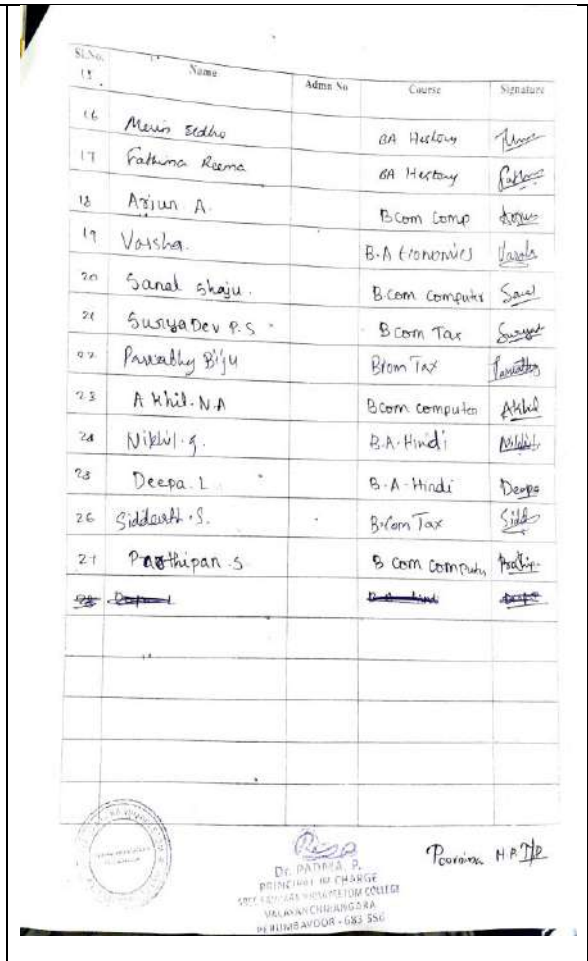 Sl.No. Name Admn No Course Signature
15
16 Merin Eldho BA History
17 Fathima Reema BA History
18 Arjun A. Bcom Comp Arjun
19 Varsha. B.A Economics Varsha
20 Sanal Shaju. B.com Computer Sanal
21 SuryaDev P.S B com Tax Surya
22 Parvathy Biju Bcom Tax Parvathy
23 Akhil.N.A Bcom computer Akhil
24 Nikhil. B.A-Hindi Nikhil
25 Deepa. L B-A-Hindi Deepa
26 Siddarth.S. B.Com Tax Sidd
27 Parthipan.S B com Computer
Dr. PADMA. P.
PRINCIPAL IN CHARGE
SREE SANKARA VIDYAPEETOM COLLEGE
VALAYANCHIRANGARA
PERUMBAVOOR - 683 556
Poornima M.R